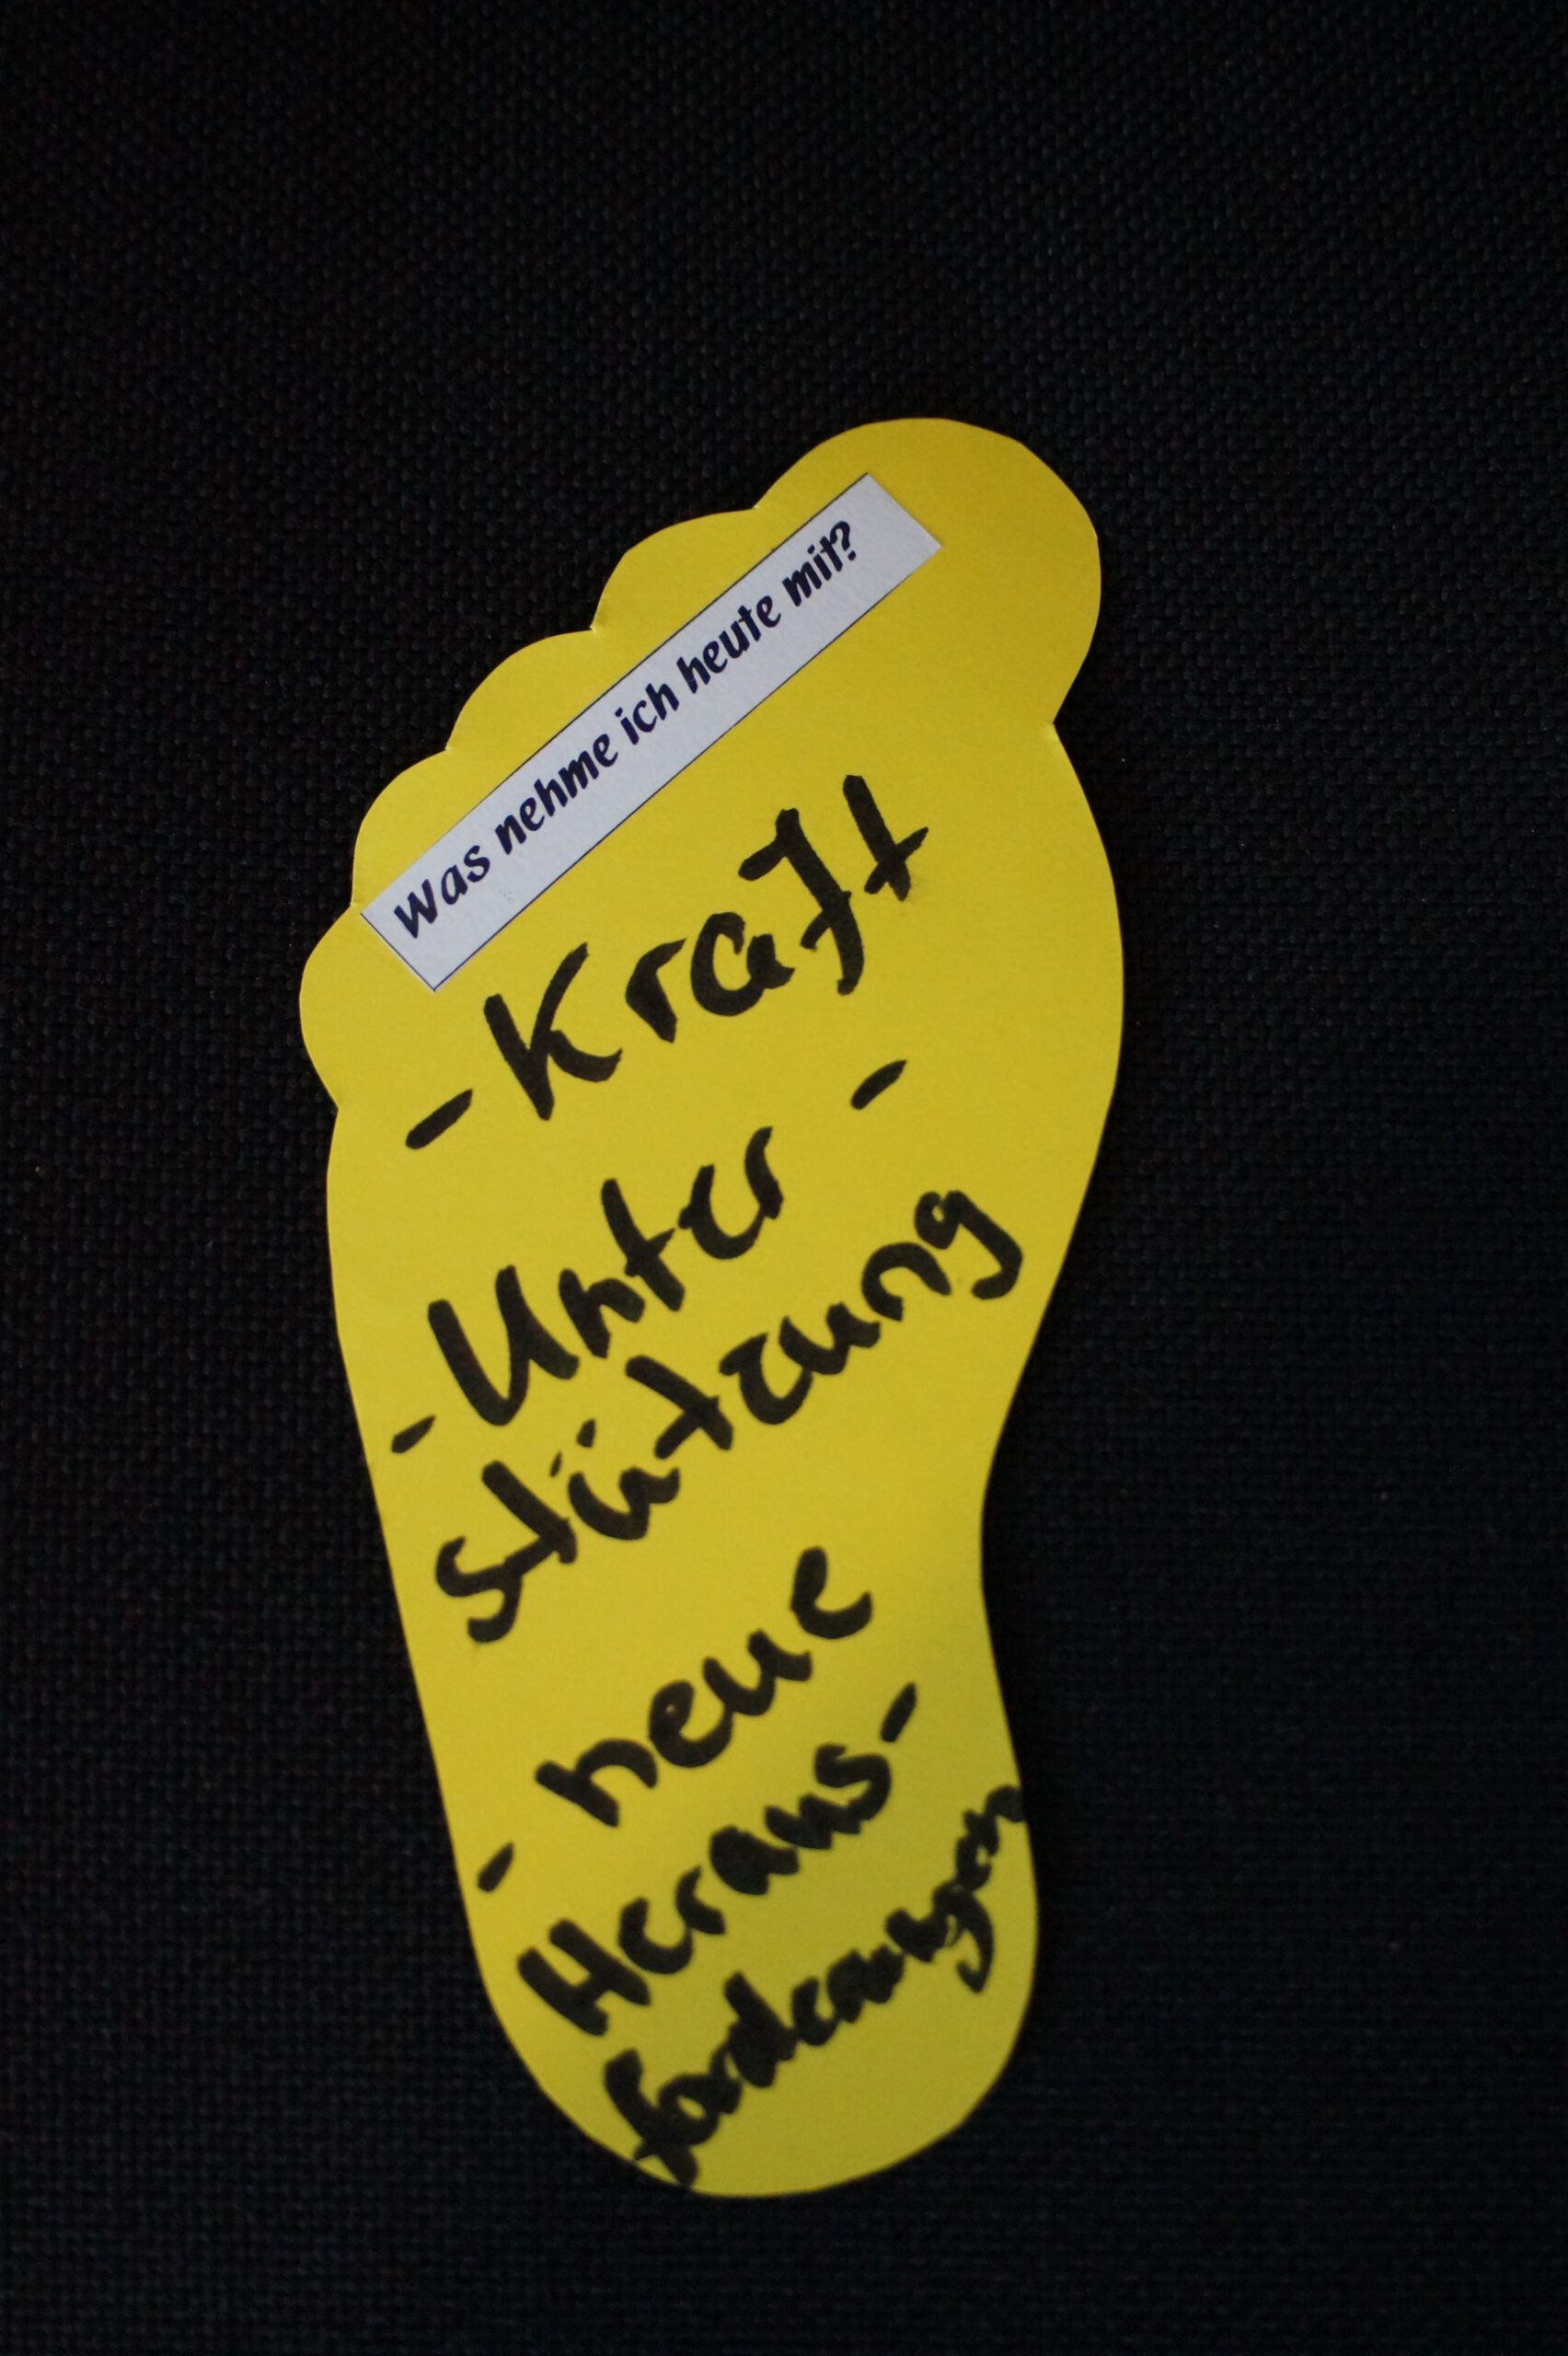 Was nehme ich heute mit?
- Kraft
- Unter -
stützung
- neue
Heraus-
forderungen